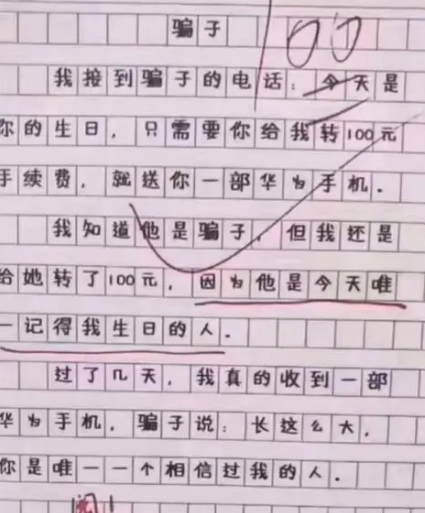 骗子
我接到骗子的电话：今天是
你的生日，只需要你给我转100元
手续费，就送你一部华为手机．
我知道他是骗子，但我还是
给她转了100元，因为他是今天唯
一记得我生日的人．
过了几天，我真的收到一部
华为手机，骗子说：长这么大，
你是唯一一个相信过我的人．
阅